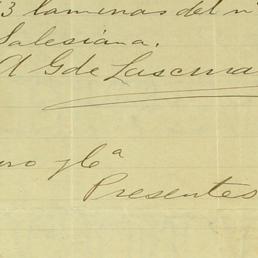 3 laminas del n
Salesiana.
A G de Lascura
ro y Cª
Presentes